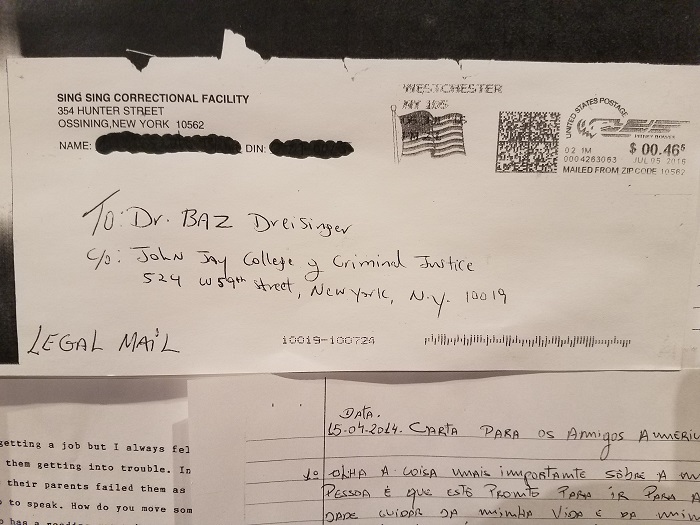 SING SING CORRECTIONAL FACILITY
354 HUNTER STREET
OSSINING, NEW YORK 10562
NAME: DIN:
WESTCHESTER
NY 105
UNITED STATES POSTAGE
PITNEY BOWES
02 1M $ 00.46⁵
0004263063 JUL 05 2016
MAILED FROM ZIP CODE 10562
To: Dr. BAZ Dreisinger
c/o: John Jay College of Criminal Justice
524 W 59th Street, New York, N.Y. 10019
LEGAL MAIL
10019-100724
getting a job but I always fel
them getting into trouble. In
their parents failed them as
to speak. How do you move som
DATA.
15-04-2014. CARTA PARA OS AMIGOS AMERIC
1º OLHA A COISA MAIS IMPORTANTE SOBRE A M
PESSOA É QUE ESTÓ PRONTO PARA IR PARA A
DADE CUIDAR DA MINHA VIDA E DA MIN